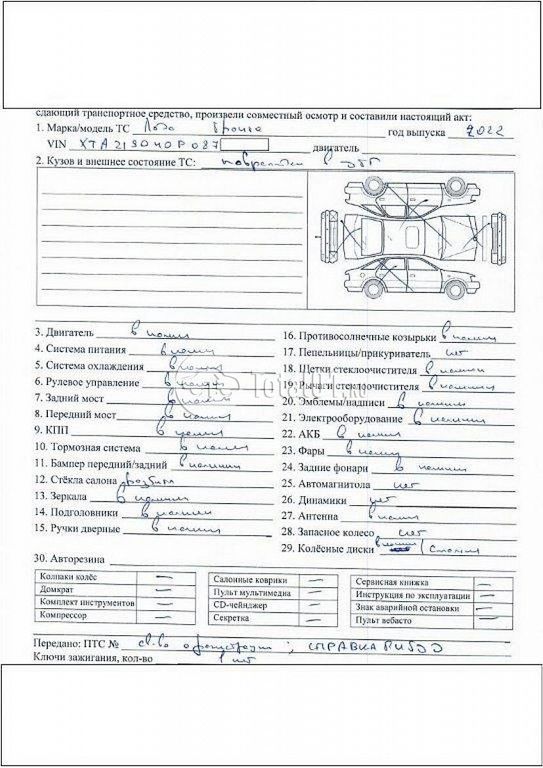 сдающий транспортное средство, произвели совместный осмотр и составили настоящий акт:
1. Марка/модель ТС Лада Гранта год выпуска 2022
VIN XTA219040P087 двигатель
2. Кузов и внешнее состояние ТС: в ДТП
3. Двигатель в наличии
4. Система питания в наличии
5. Система охлаждения в наличии
6. Рулевое управление в наличии
7. Задний мост в наличии
8. Передний мост в наличии
9. КПП в наличии
10. Тормозная система в наличии
11. Бампер передний/задний в наличии
12. Стёкла салона разбиты
13. Зеркала в наличии
14. Подголовники в наличии
15. Ручки дверные в наличии
16. Противосолнечные козырьки в наличии
17. Пепельницы/прикуриватель нет
18. Щетки стеклоочистителя в наличии
19. Рычаги стеклоочистителя в наличии
20. Эмблемы/надписи в наличии
21. Электрооборудование в наличии
22. АКБ в наличии
23. Фары в наличии
24. Задние фонари в наличии
25. Автомагнитола нет
26. Динамики нет
27. Антенна в наличии
28. Запасное колесо нет
29. Колёсные диски в наличии
30. Авторезина
Колпаки колёс —
Домкрат —
Комплект инструментов —
Компрессор —
Салонные коврики —
Пульт мультимедиа —
CD-чейнджер —
Секретка —
Сервисная книжка —
Инструкция по эксплуатации —
Знак аварийной остановки —
Пульт вебасто —
Передано: ПТС № св-во о регистрации; СПРАВКА
Ключи зажигания, кол-во 1 шт